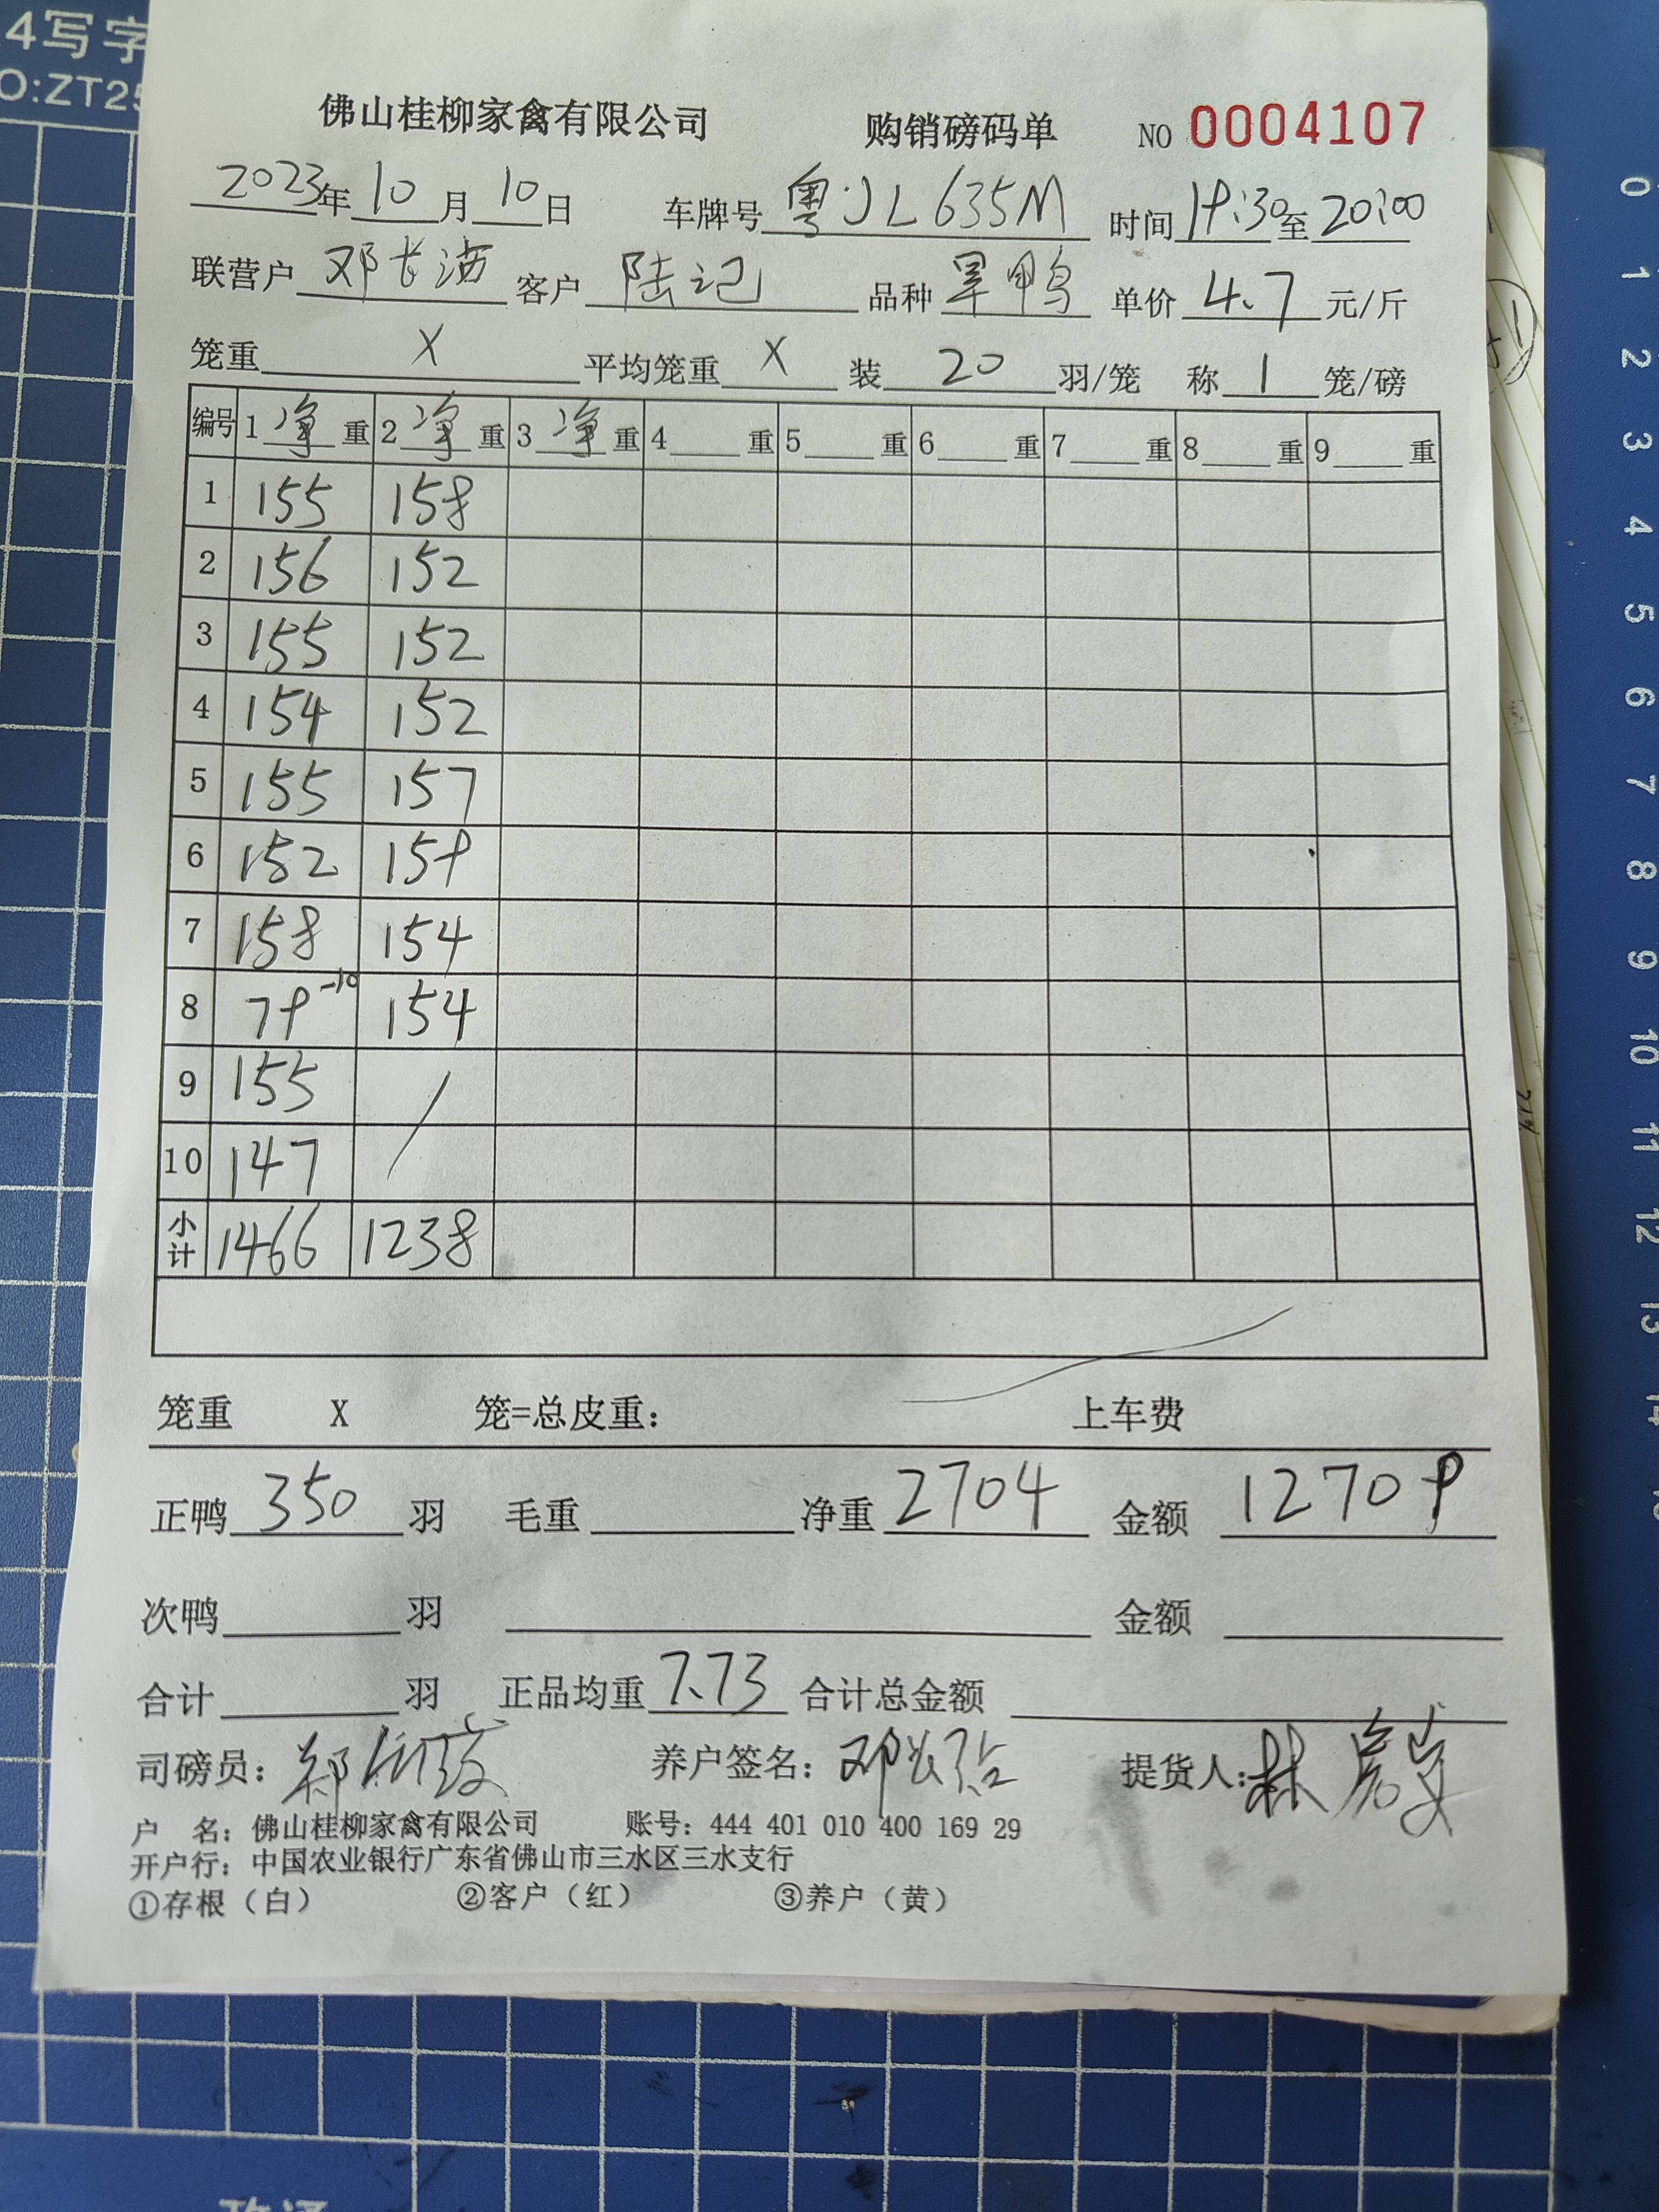 4写字
NO:ZT25
佛山桂柳家禽有限公司 购销磅码单 NO 0004107
2023年10月10日 车牌号 粤JL635M 时间 19:30至20:00
联营户 邓长 客户 陆记 品种 旱鸭 单价 4.7 元/斤
笼重 X 平均笼重 X 装 20 羽/笼 称 1 笼/磅
编号 1净重 2净重 3净重 4 重 5 重 6 重 7 重 8 重 9 重
1 155 158
2 156 152
3 155 152
4 154 152
5 155 157
6 152 159
7 158 154
8 79-10 154
9 155 /
10 147
小计 1466 1238
笼重 X 笼=总皮重： 上车费
正鸭 350 羽 毛重 净重 2704 金额 12709
次鸭 羽 金额
合计 羽 正品均重 7.73 合计总金额
司磅员：郑 养户签名：邓 提货人：林
户 名：佛山桂柳家禽有限公司 账号：444 401 010 400 169 29
开户行：中国农业银行广东省佛山市三水区三水支行
①存根（白） ②客户（红） ③养户（黄）
0
1
2
3
4
5
6
7
8
9
10
11
12
13
14